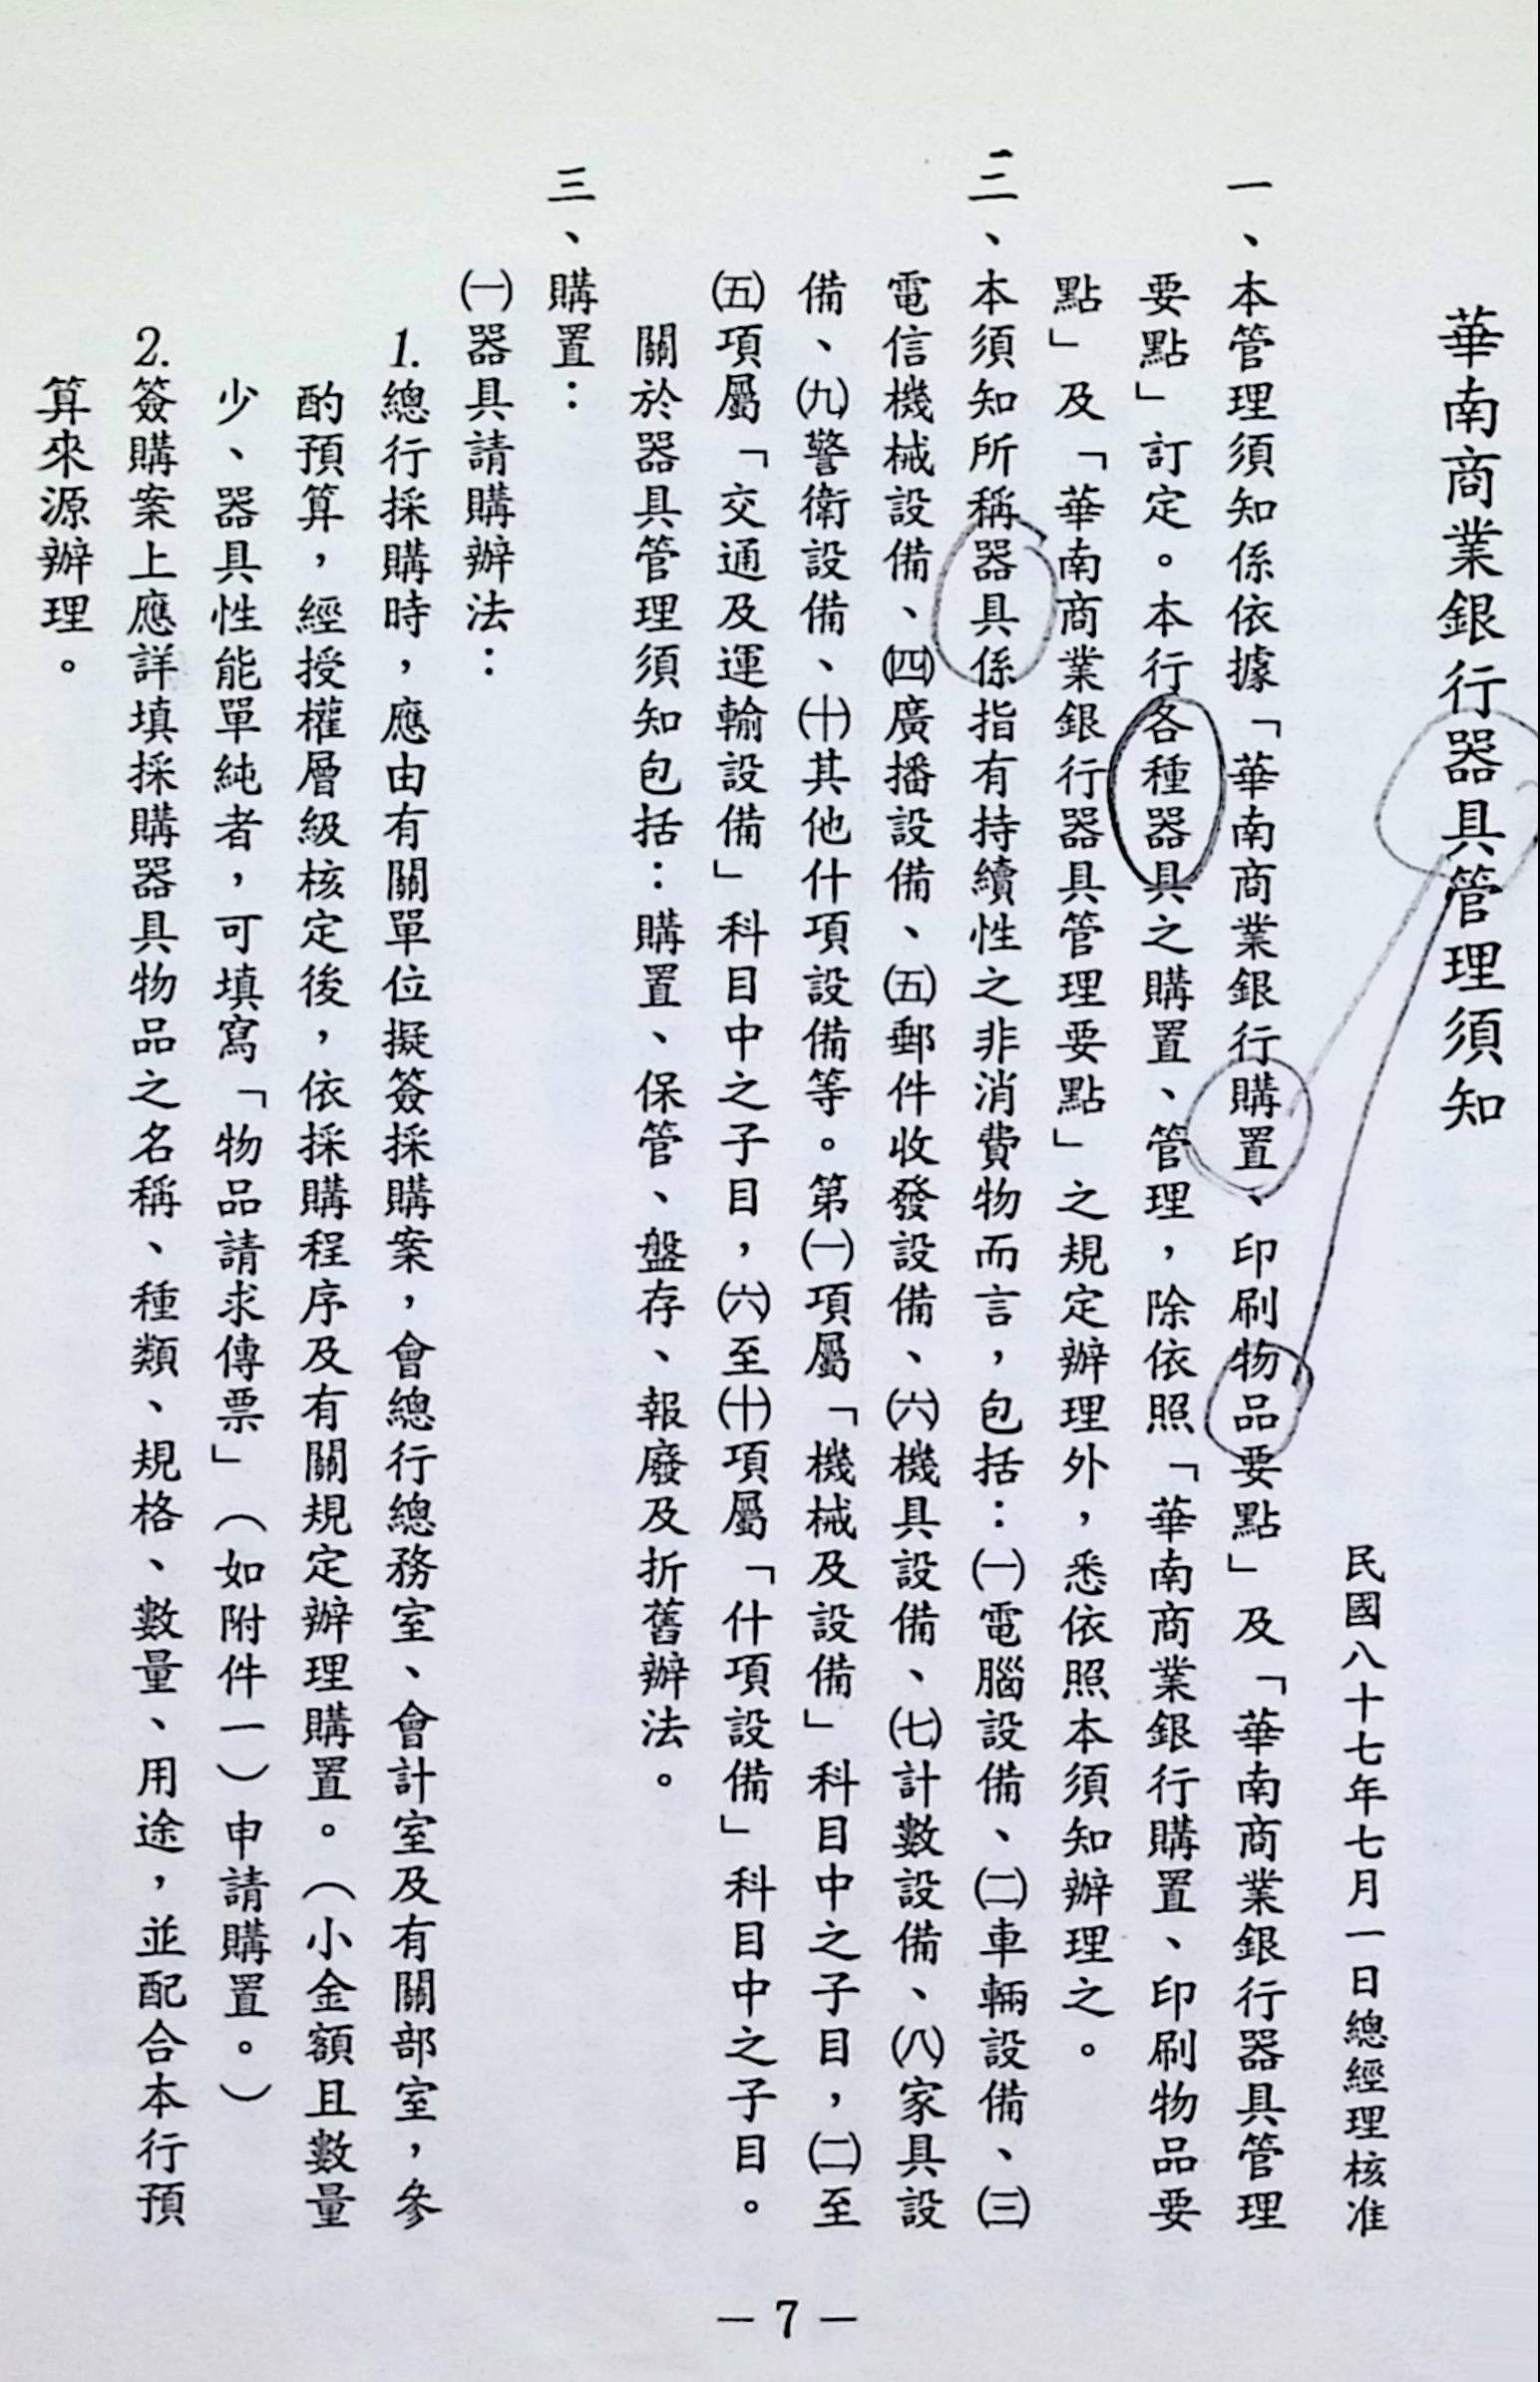 華南商業銀行器具管理須知
民國八十七年七月一日總經理核准
一、本管理須知係依據「華南商業銀行購置、印刷物品要點」及「華南商業銀行器具管理
要點」訂定。本行各種器具之購置、管理，除依照「華南商業銀行購置、印刷物品要
點」及「華南商業銀行器具管理要點」之規定辦理外，悉依照本須知辦理之。
二、本須知所稱器具係指有持續性之非消費物而言，包括：㈠電腦設備、㈡車輛設備、㈢
電信機械設備、㈣廣播設備、㈤郵件收發設備、㈥機具設備、㈦計數設備、㈧家具設
備、㈨警衛設備、㈩其他什項設備等。第㈠項屬「機械及設備」科目中之子目，㈡至
㈤項屬「交通及運輸設備」科目中之子目，㈥至㈩項屬「什項設備」科目中之子目。
關於器具管理須知包括：購置、保管、盤存、報廢及折舊辦法。
三、購置：
㈠器具請購辦法：
1.總行採購時，應由有關單位擬簽採購案，會總行總務室、會計室及有關部室，參
酌預算，經授權層級核定後，依採購程序及有關規定辦理購置。（小金額且數量
少、器具性能單純者，可填寫「物品請求傳票」（如附件一）申請購置。）
2.簽購案上應詳填採購器具物品之名稱、種類、規格、數量、用途，並配合本行預
算來源辦理。
－7－